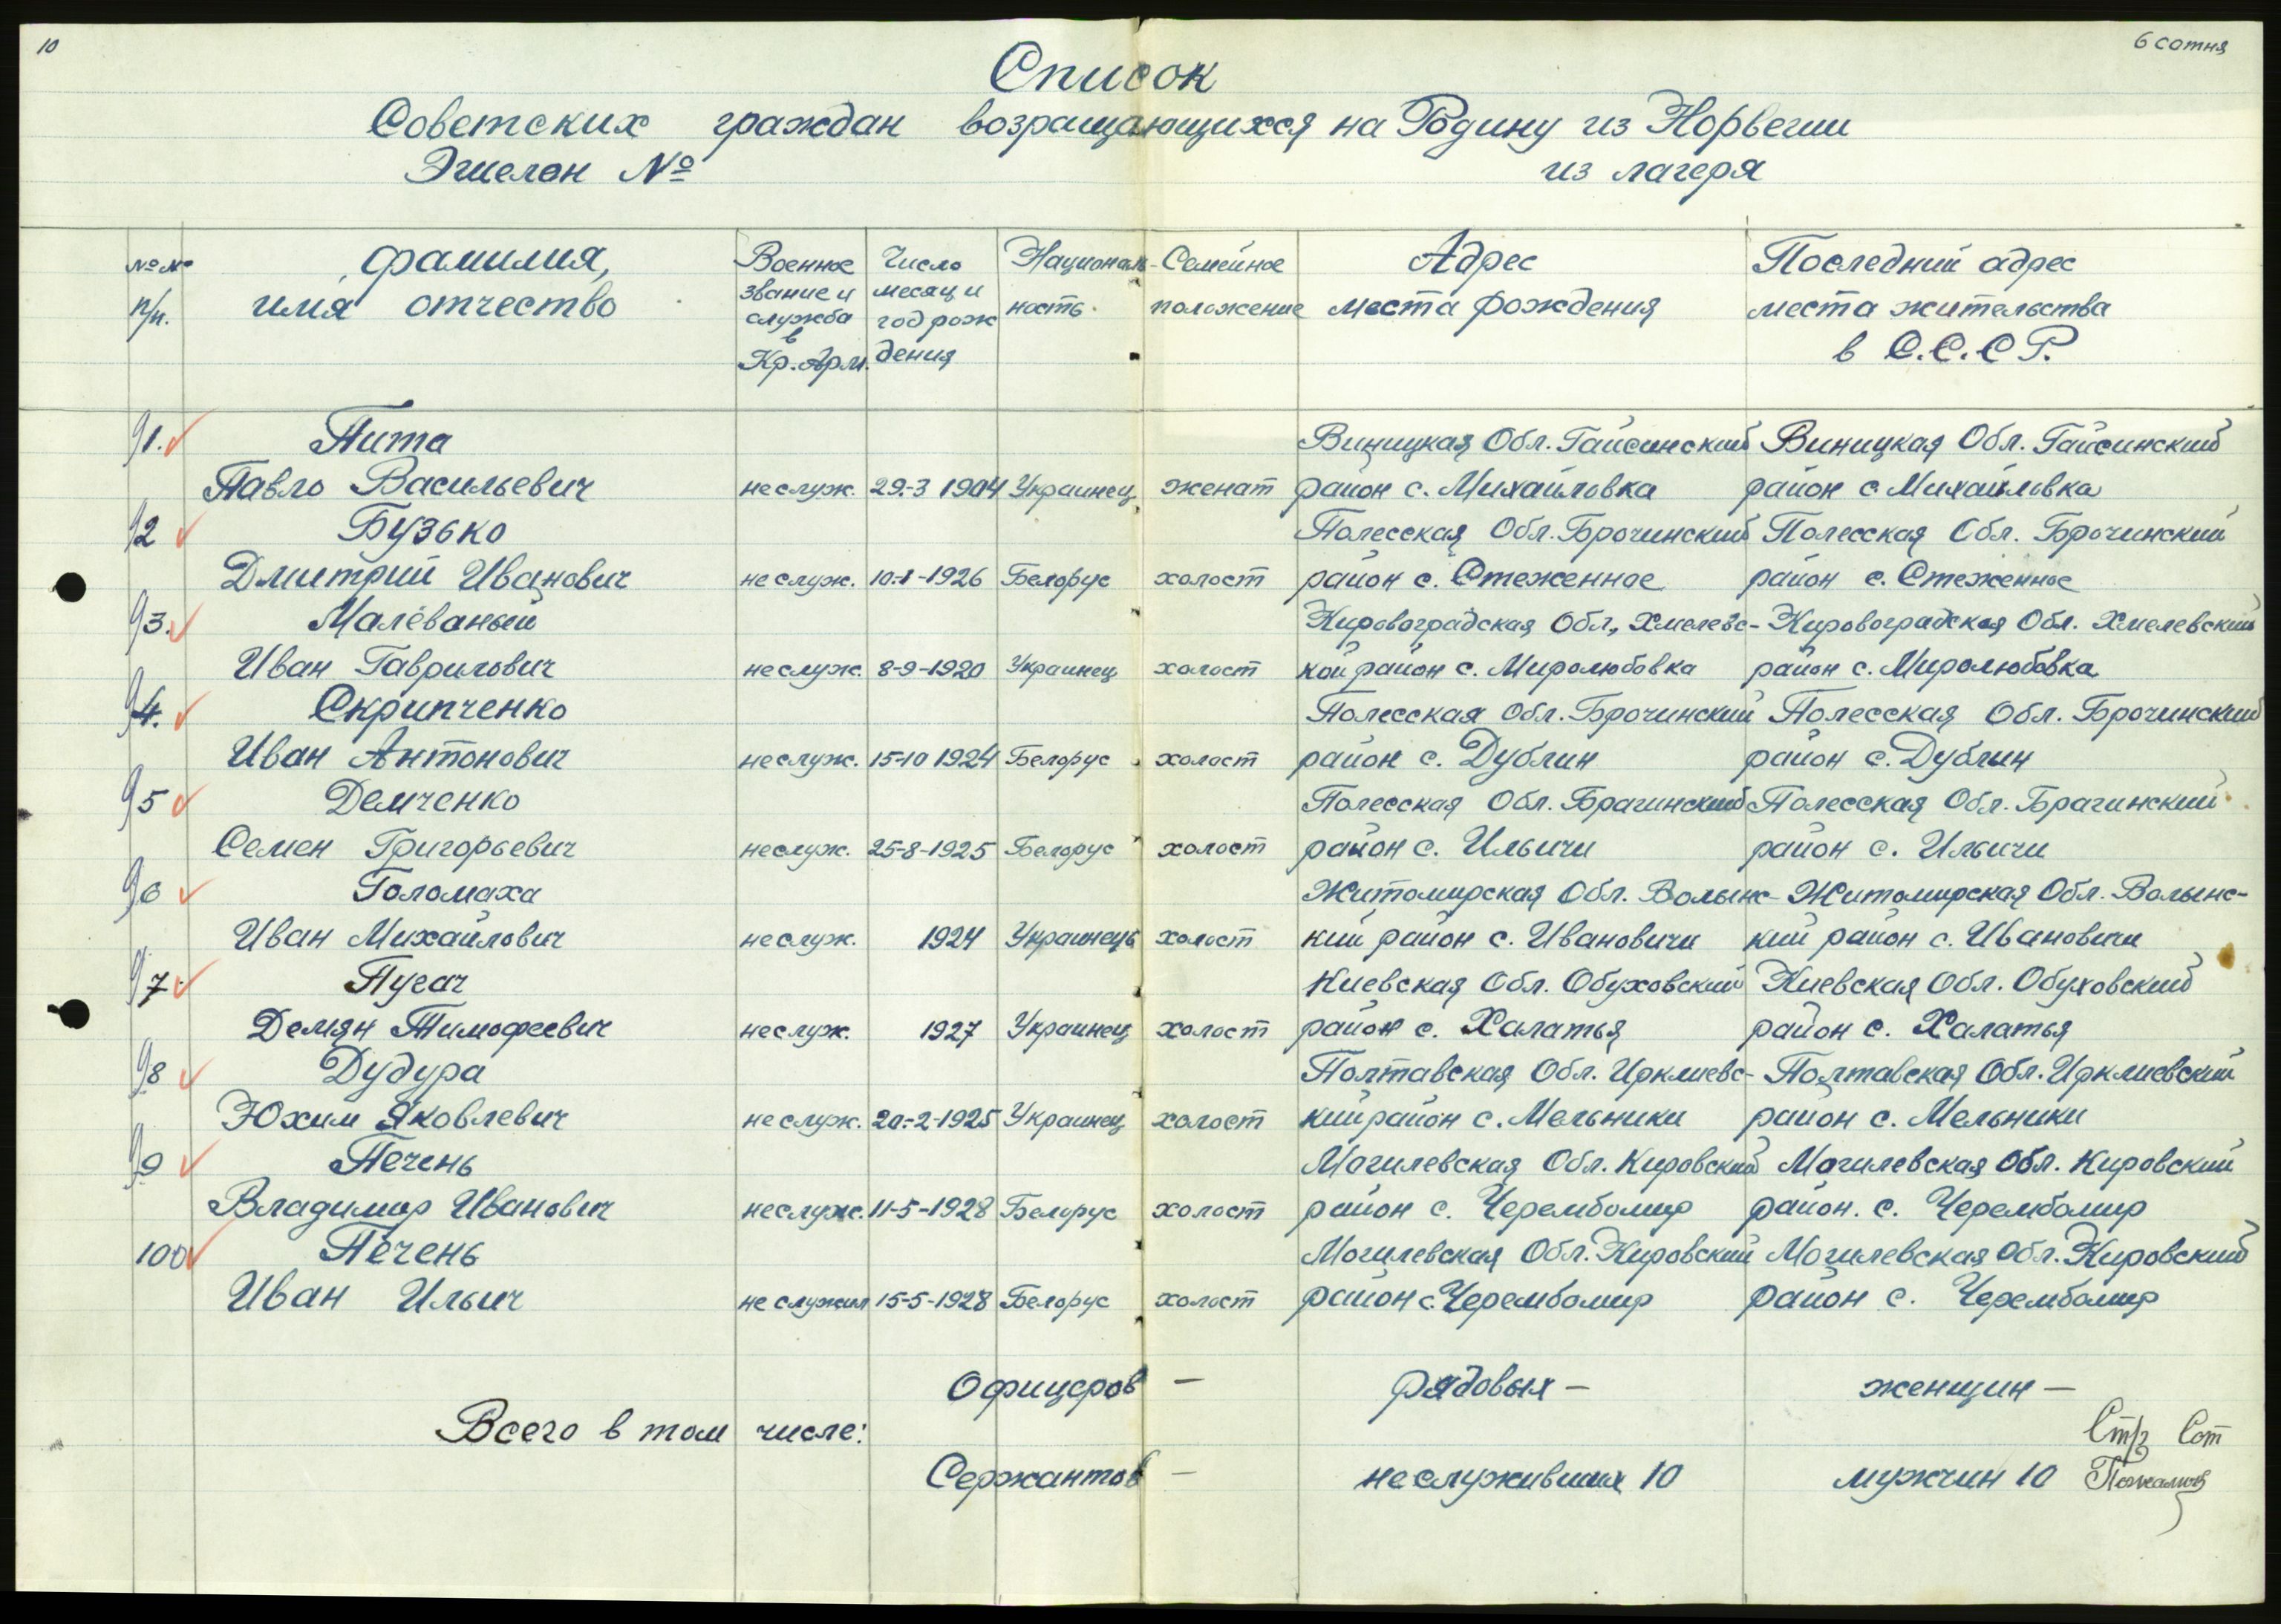 10
6 сотня
Список
Советских граждан возращающихся на Родину из Норвегии
Эшелон № из лагеря
№№ п/н.
фамилия, имя отчество
Военное звание и служба в Кр. Арм.
Число месяц и год рождения
Националь-ность.
Семейное положение
Адрес места рождения
Последний адрес места жительства в С.С.С Р.
91. Пита Виницкая Обл. Гайсинский Виницкая Обл. Гайсинский
Павло Васильевич не служ. 29-3 1904 Украинец женат район с. Михайловка район с Михайловка
92 Бузько Полесская Обл. Брочинский Полесская Обл. Брочинский
Дмитрий Иванович не служ. 10-1-1926 Белорус холост район с. Стеженное район с. Стеженное
93. Малёваный Кировоградская Обл, Хмелевс- Кировоградская Обл. Хмелевский
Иван Гаврилович не служ. 8-9-1920 Украинец холост кой район с. Миролюбовка район с. Миролюбовка
94. Скрипченко Полесская Обл. Брочинский Полесская Обл. Брочинский
Иван Антонович не служ. 15-10 1924 Белорус холост район с. Дублин район с. Дублин
95 Демченко Полесская Обл. Брагинский Полесская Обл. Брагинский
Семен Григорьевич не служ. 25-8-1925 Белорус холост район с. Ильичи район с. Ильичи
96 Головаха Житомирская Обл. Волынс- Житомирская Обл. Волынс-
Иван Михайлович не служ. 1924 Украинець холост кий район с. Ивановичи кий район с. Ивановичи
97. Пугач Киевская Обл. Обуховский Киевская Обл. Обуховский
Демян Тимофеевич не служ. 1927 Украинец холост район с. Халатья район с. Халатья
98 Дудура Полтавская Обл. Ирклиевс- Полтавская Обл. Ирклиевский
Юхим Яковлевич не служ. 20-2-1925 Украинец холост кий район с. Мельники район с. Мельники
99 Печень Могилевская Обл. Кировский Могилевская Обл. Кировский
Владимир Иванович не служ. 11-5-1928 Белорус холост район с. Черембомир район. с. Черембомир
100 Печень Могилевская Обл. Кировский Могилевская Обл. Кировский
Иван Ильич не служил 15-5-1928 Белорус холост район с. Черембомир район с. Черембомир
Офицеров – рядовых – женщин –
Всего в том числе:
Сержантов – не служивших 10 мужчин 10